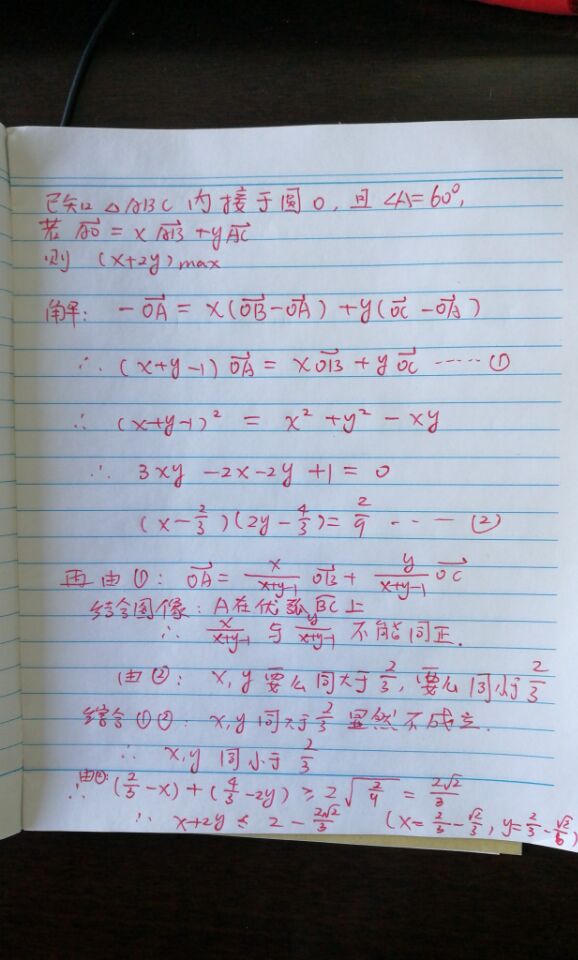 已知 △ABC 内接于圆O, 且 ∠A=60°,
若 \overrightarrow{AO} = x\overrightarrow{AB} + y\overrightarrow{AC}
则 (x+2y)max
解: -\overrightarrow{OA} = x(\overrightarrow{OB}-\overrightarrow{OA}) + y(\overrightarrow{OC}-\overrightarrow{OA})
∴ (x+y-1)\overrightarrow{OA} = x\overrightarrow{OB} + y\overrightarrow{OC} ······ ①
∴ (x+y-1)² = x²+y²-xy
∴ 3xy-2x-2y+1=0
(x-\frac{2}{3})(2y-\frac{4}{3})=\frac{2}{9} ---- ②
再由①: \overrightarrow{OA} = \frac{x}{x+y-1}\overrightarrow{OB} + \frac{y}{x+y-1}\overrightarrow{OC}
结合图像: A在优弧BC上
∴ \frac{x}{x+y-1} 与 \frac{y}{x+y-1} 不能同正.
由②: x,y 要么同大于\frac{2}{3}, 要么同小于\frac{2}{3}
结合①②: x,y同大于\frac{2}{3} 显然不成立.
∴ x,y 同小于\frac{2}{3}
∴ 由②: (\frac{2}{3}-x)+(\frac{4}{3}-2y) ≥ 2\sqrt{\frac{2}{9}} = \frac{2\sqrt{2}}{3}
∴ x+2y ≤ 2-\frac{2\sqrt{2}}{3} (x=\frac{2}{3}-\frac{\sqrt{2}}{3}, y=\frac{2}{3}-\frac{\sqrt{2}}{6})